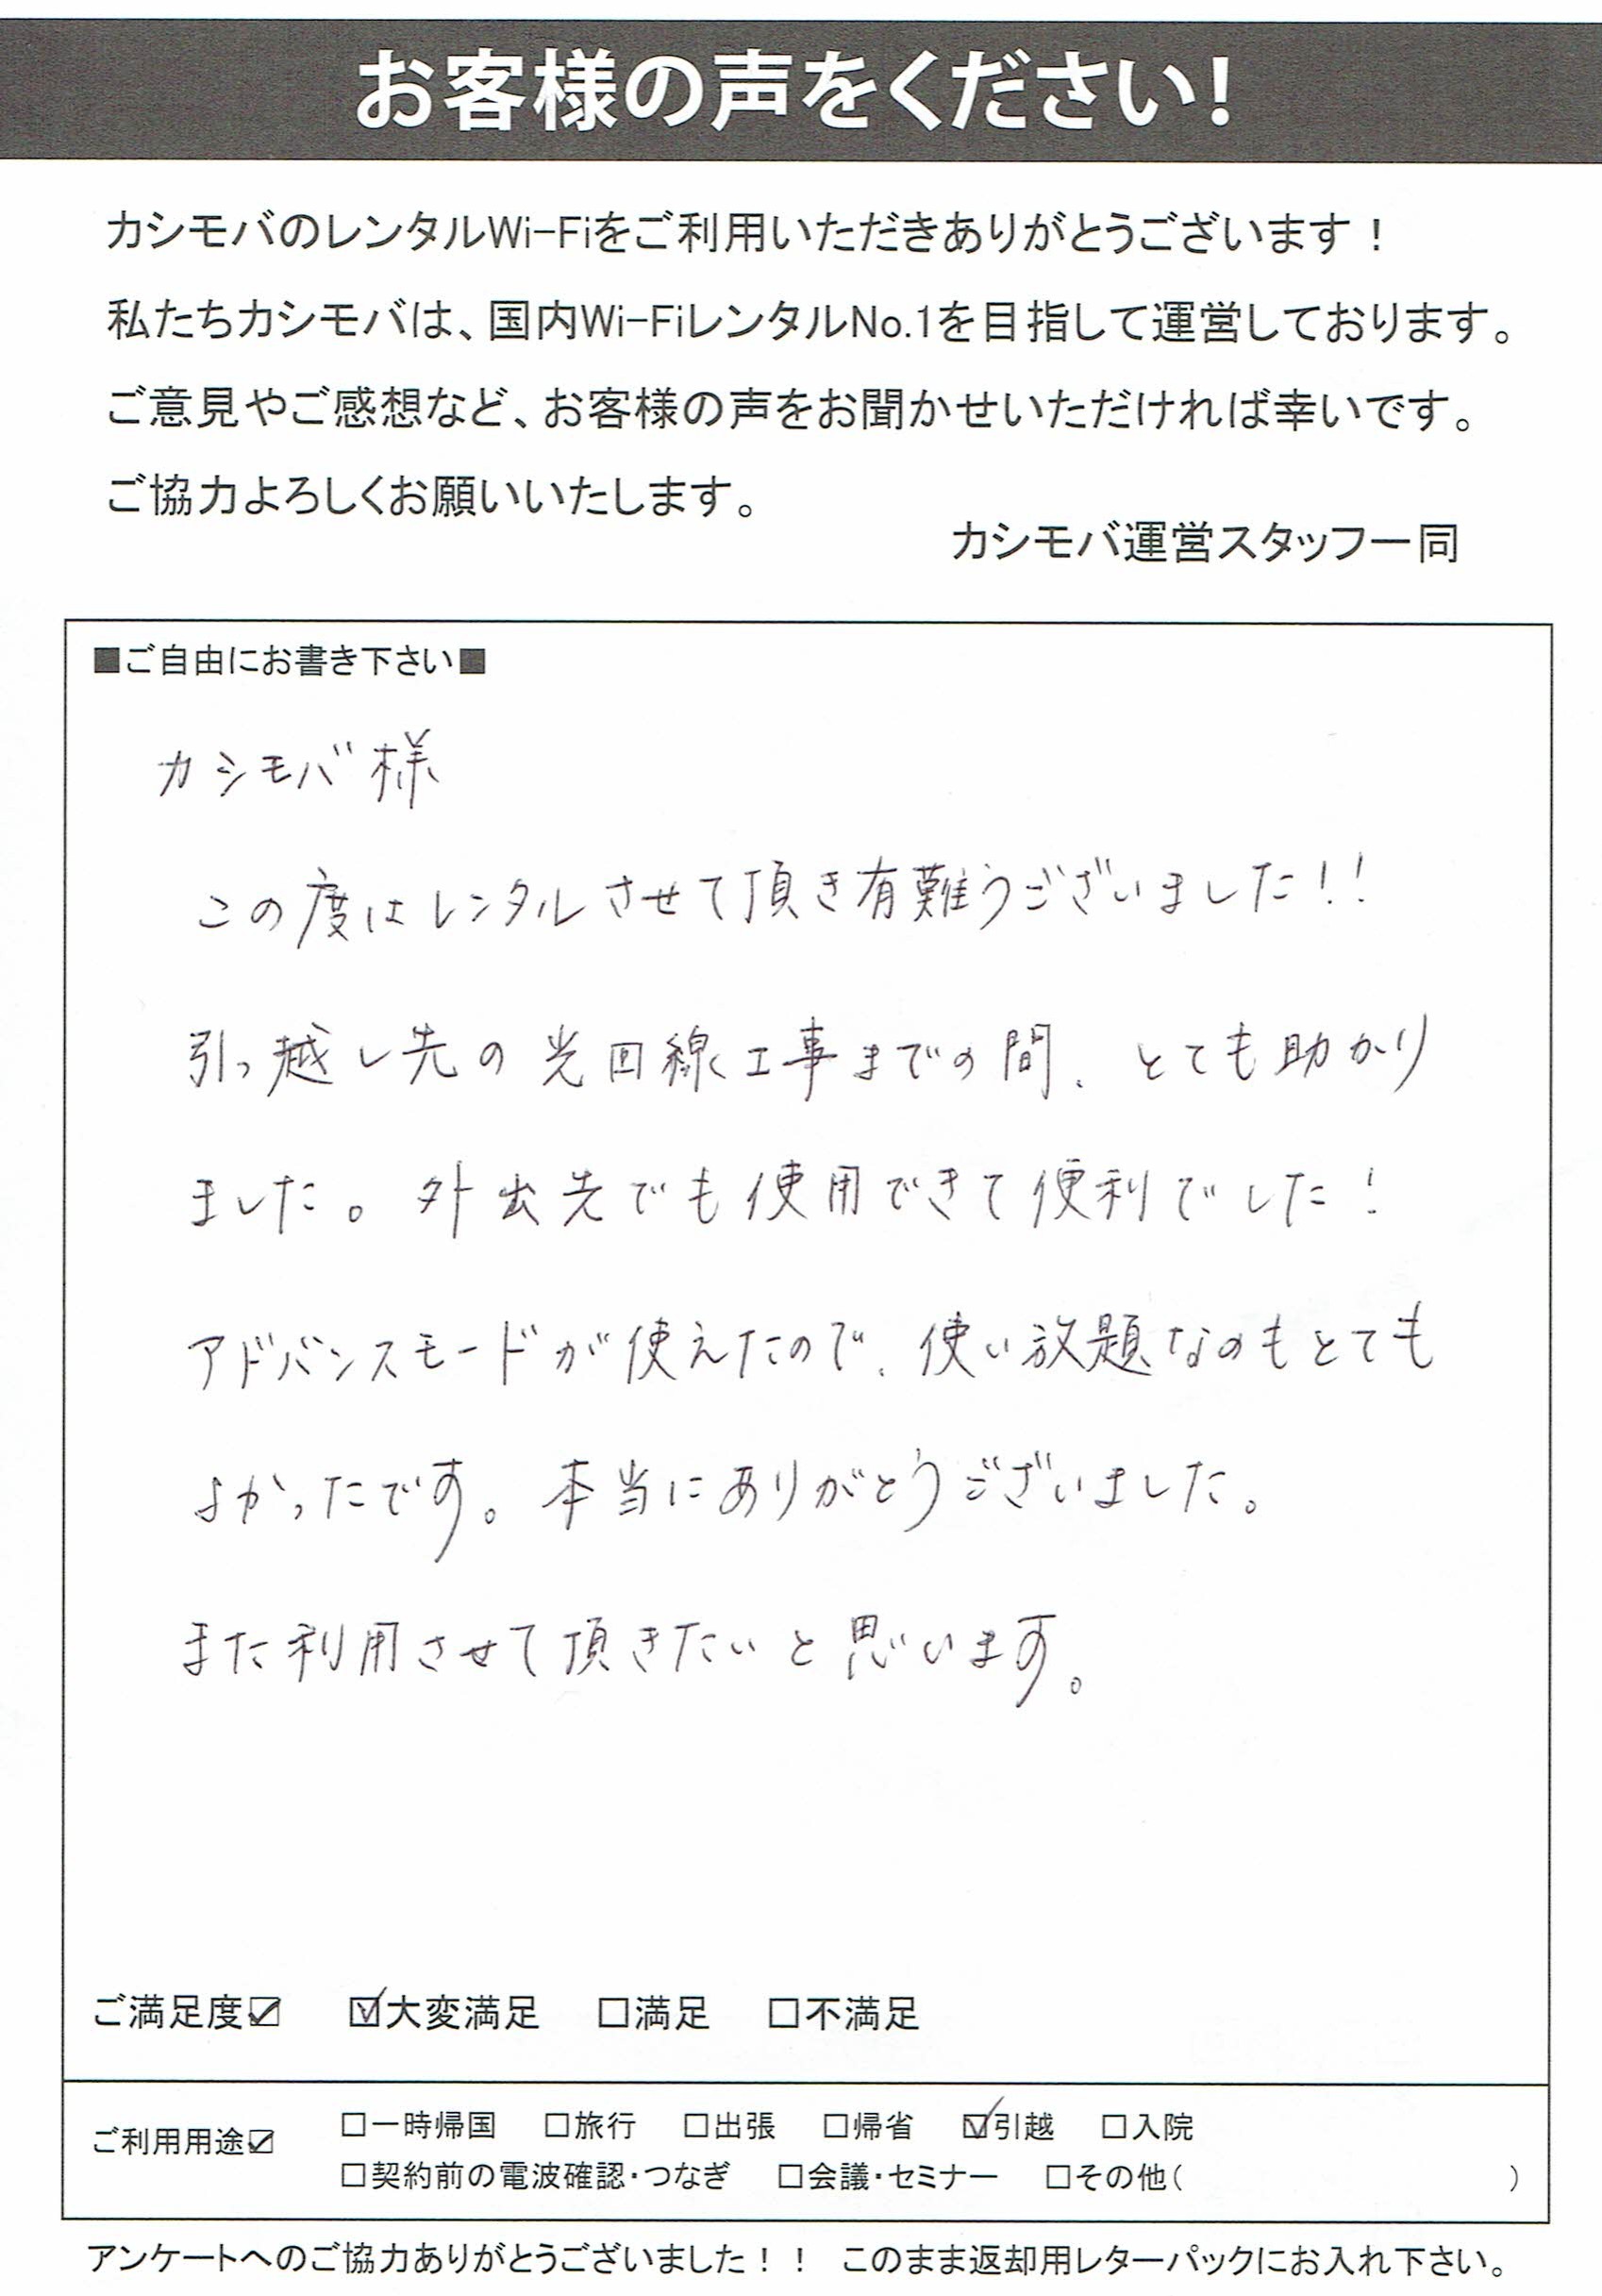 お客様の声をください！
カシモバのレンタルWi-Fiをご利用いただきありがとうございます！
私たちカシモバは、国内Wi-FiレンタルNo.1を目指して運営しております。
ご意見やご感想など、お客様の声をお聞かせいただければ幸いです。
ご協力よろしくお願いいたします。
カシモバ運営スタッフ一同
■ご自由にお書き下さい■
カシモバ様
この度はレンタルさせて頂き有難うございました！！
引っ越し先の光回線工事までの間、とても助かり
ました。外出先でも使用できて便利でした！
アドバンスモードが使えたので、使い放題なのもとても
よかったです。本当にありがとうございました。
また利用させて頂きたいと思います。
ご満足度☑ ☑大変満足 □満足 □不満足
ご利用用途☑ □一時帰国 □旅行 □出張 □帰省 ☑引越 □入院
□契約前の電波確認・つなぎ □会議・セミナー □その他（ ）
アンケートへのご協力ありがとうございました！！ このまま返却用レターパックにお入れ下さい。